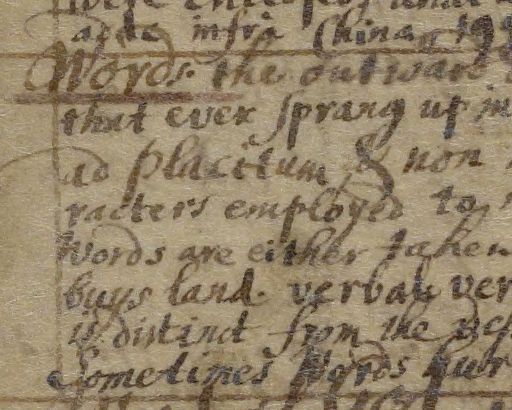 adde infra China 191
Words. the outward
that ever sprang up in
ad placitum, & non
racters employed to
Words are either taken
buys land. verbal ver
is distinct from the
Sometimes Words hur